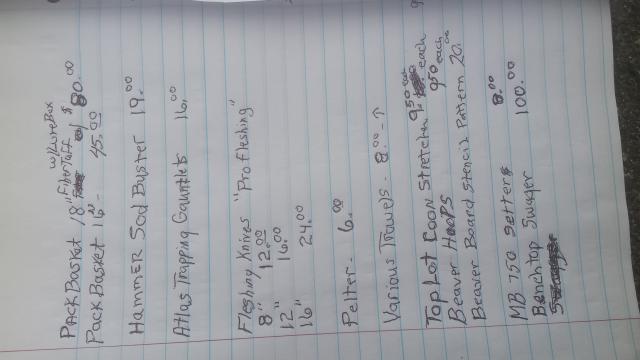 w/LureBox
PackBasket 18" FiberTuff w/ $80.00
Pack Basket 16" - 45.00
Hammer Sod Buster 19.00
Atlas Trapping Gauntlets 16.00
Fleshing Knives "Pro fleshing"
8" 12.00
12" 16.00
16" 24.00
Pelter - 6.00
Various Trowels - 8.00 - ↑
Top Lot Coon Stretcher 9.50 each
Beaver Hoops 9.50 each
Beaver Board Stencil Pattern 20.00
MB 750 Setters 8.00
Benchtop Swager 100.00